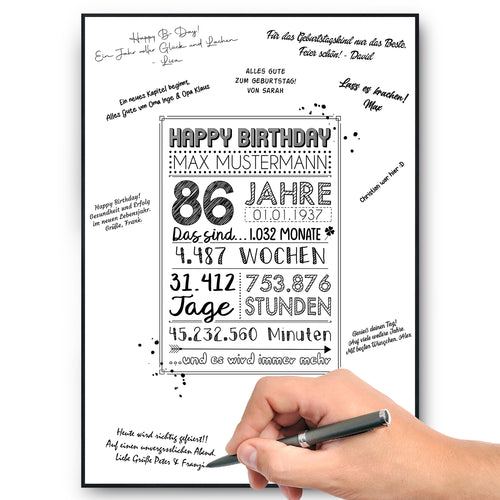 Happy B-Day!
Ein Jahr voller Glück und Lachen
- Lisa
Für das Geburtstagskind nur das Beste.
Feier schön! - David
ALLES GUTE
ZUM GEBURTSTAG!
VON SARAH
Lass es krachen!
Max
Ein neues Kapitel beginnt,
Alles Gute von Oma Inge & Opa Klaus
HAPPY BIRTHDAY
MAX MUSTERMANN
86
JAHRE
01.01.1937
Das sind... 1.032 MONATE
4.487 WOCHEN
31.412
Tage
753.876
STUNDEN
45.232.560 Minuten
...und es wird immer mehr
Christian war hier :-D
Happy Birthday!
Gesundheit und Erfolg
im neuen Lebensjahr.
Grüße, Frank.
Genieß deinen Tag!
Auf viele weitere Jahre.
Mit besten Wünschen, Alex
Heute wird richtig gefeiert!!
Auf einen unvergesslichen Abend.
Liebe Grüße Peter & Franzi